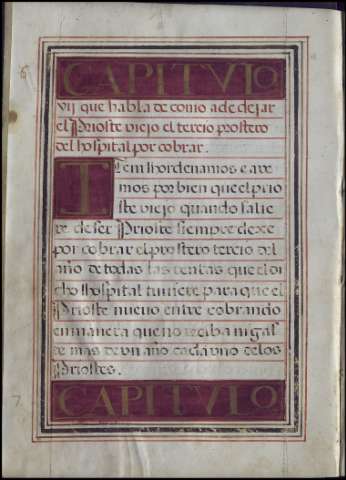 CAPITVLO
vij que habla de como a de dejar
el Prioste viejo el tercio postrero
del hospital por cobrar.
Item hordenamos e aue
mos por bien que el prio
ste viejo quando salie
re de ser Prioste siempre dexe
por cobrar el postrero tercio del
año de todas las rentas que el di
cho hospital tuuiere para que el
Prioste nueuo entre cobrando
en manera que no reciba ni gas
te mas de vn año cada vno de los
Priostes.
CAPITVLO